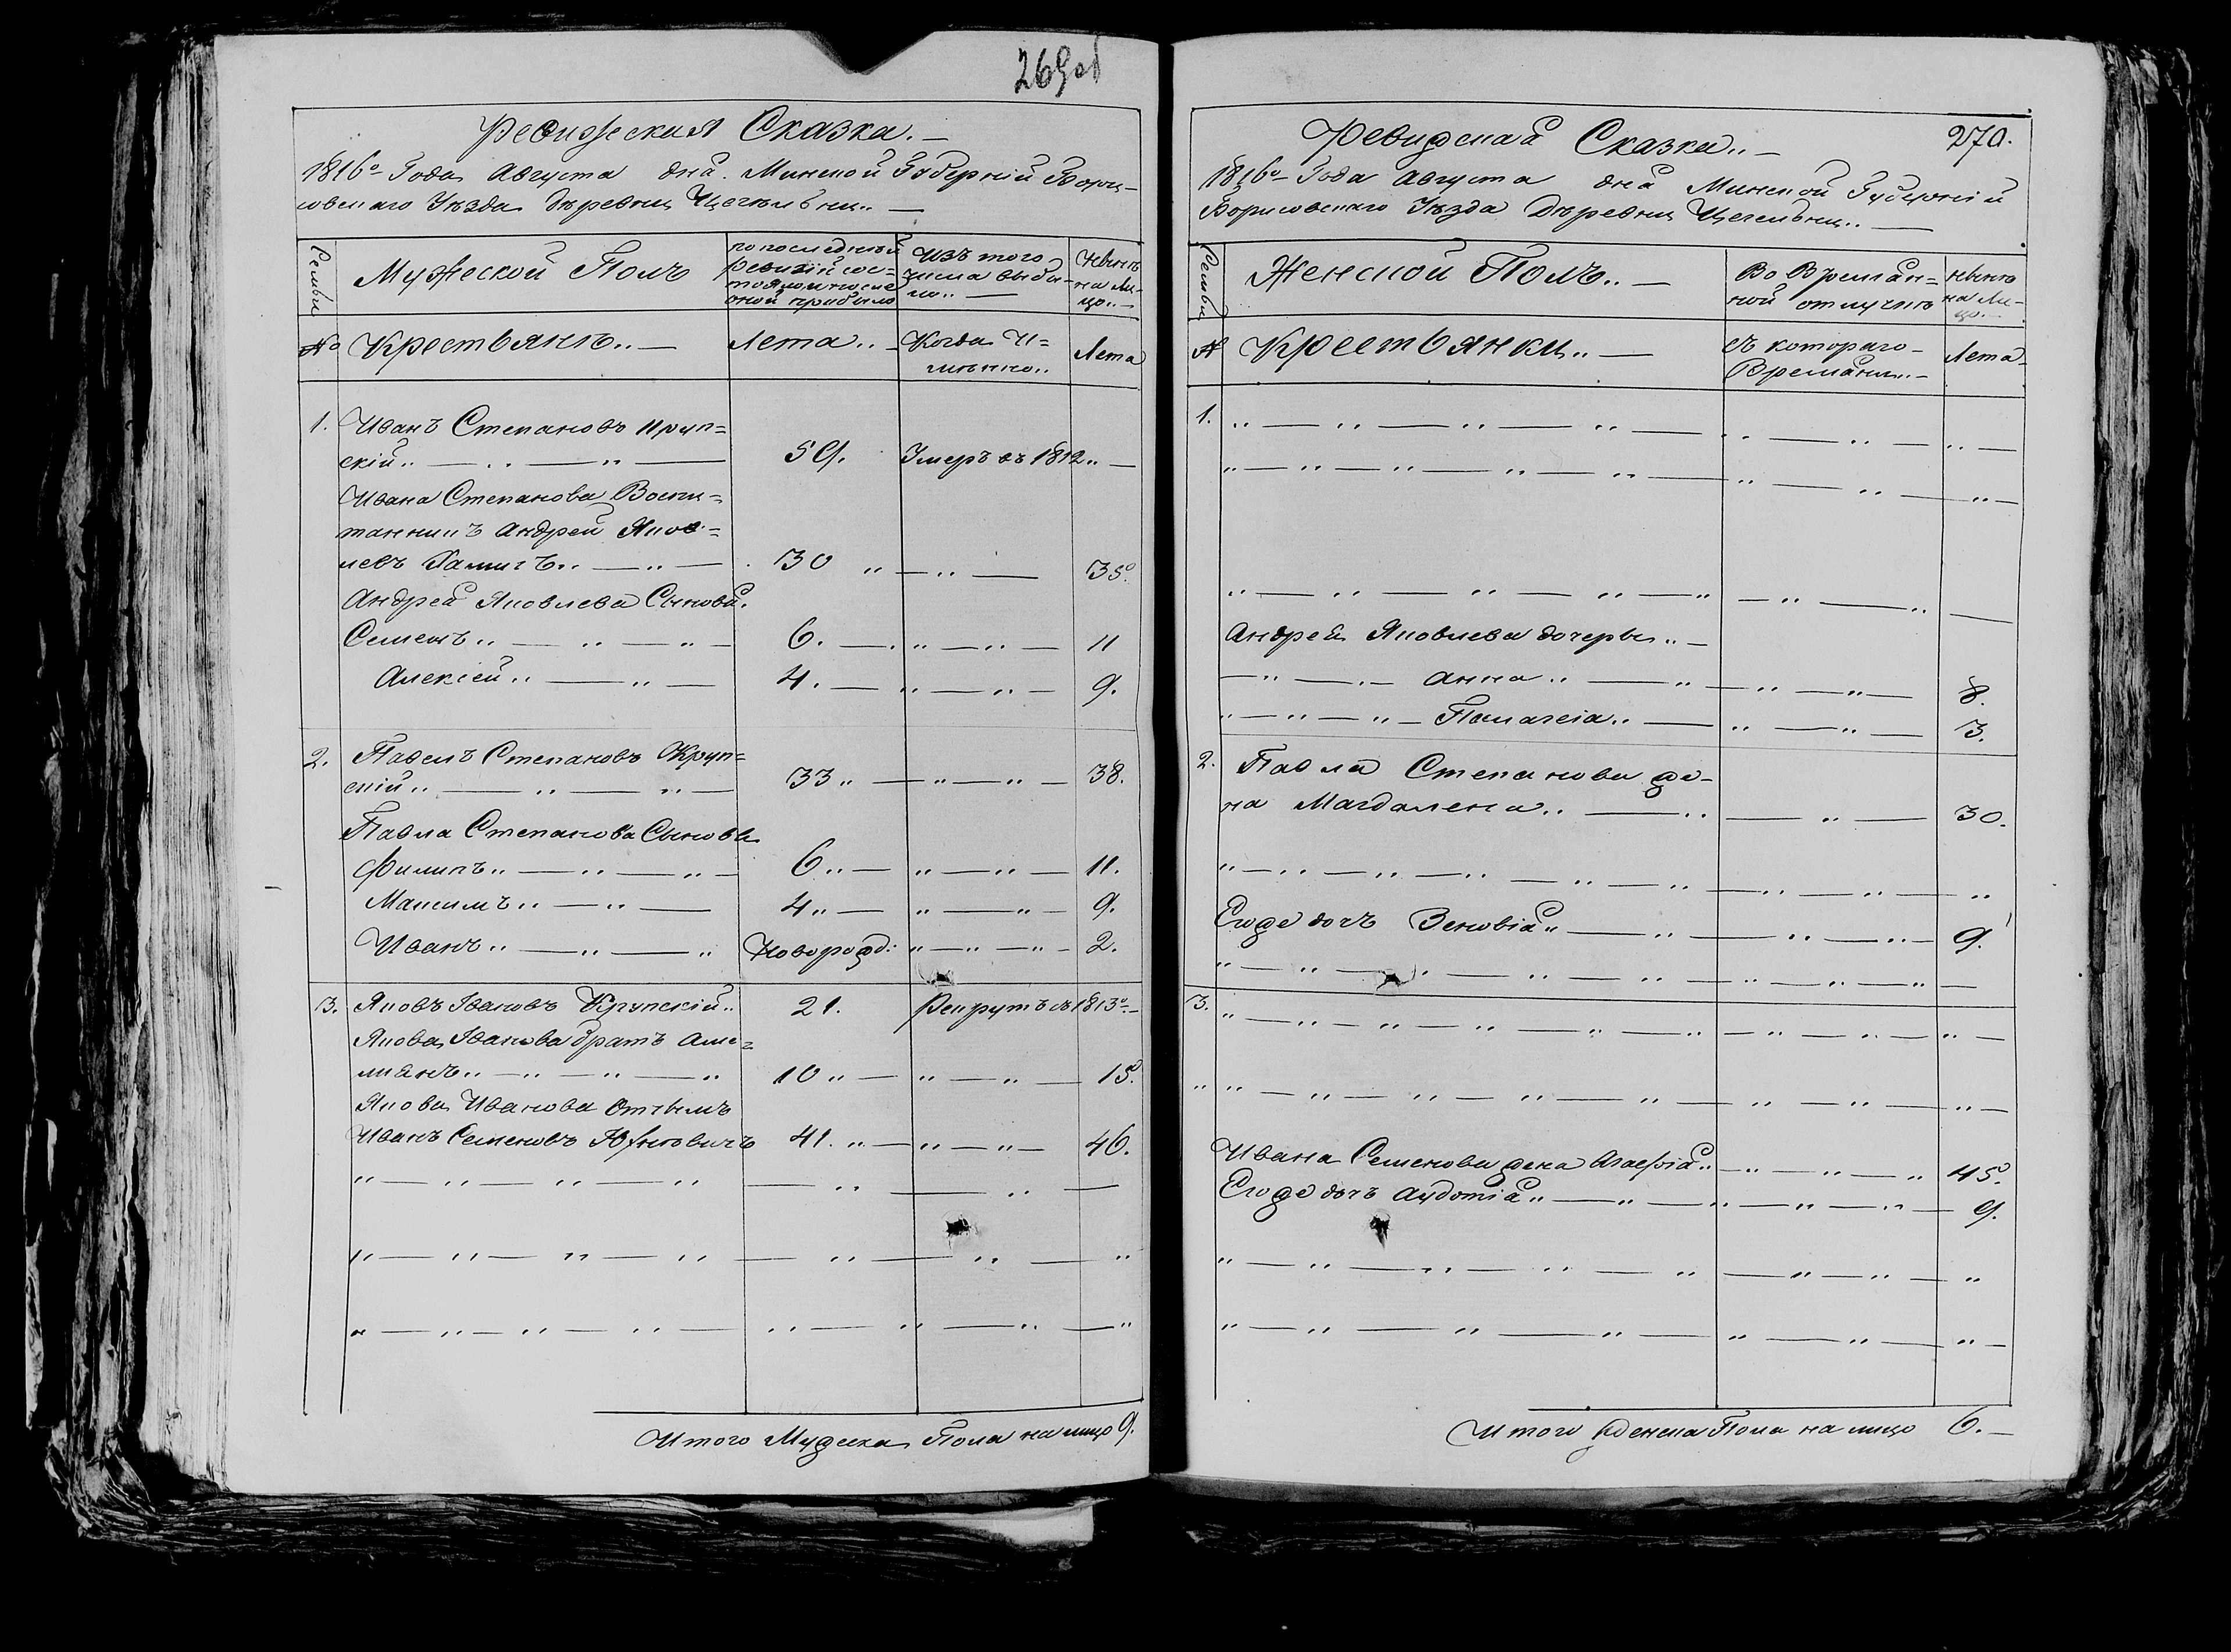 269об
Ревизская Сказка. —
1816го Года Августа дня. Минской Губерніи Бори-
совскаго Уѣзда Дѣревни Цегельни.. —
Семьи
Мужеской Полъ
по последней
ревизіи сос-
тояло и после
оной прибыло
Изъ того
числа выбы-
ло.. —
Нынѣ
на ли-
цо.. —
№
Крестьянѣ.. —
Лета.. —
Когда И-
мянно..
Лета
1. Иванъ Степановъ Круп=
скій.. — 59. Умеръ въ 1812.. —
Ивана Степанова Воспи=
танникъ Андрей Яков=
левъ 30 .. — .. — 35.
Андрея Яковлева Сыновя.
Семенъ.. — .. — .. — 6. — .. — .. — 11
Алексей.. — .. — 4. — .. — .. — 9.
2. Павелъ Степановъ Круп=
скій.. — .. — .. — 33.. — .. — .. — 38.
Павла Степанова Сыновя
Филипъ.. — .. — .. — 6.. — .. — .. — 11.
Максимъ.. — .. — 4.. — .. — .. — 9.
Иванъ.. — .. — .. Новорожд: .. — .. — .. — 2.
3. Яковъ Ивановъ Крупскій.. 21. Рекрутъ въ 1813о —
Якова Иванова братъ Аме=
лианъ.. — .. — .. — .. 10.. — .. — .. — 15.
Якова Иванова Отчымъ
Иванъ Семеновъ 41. .. — .. — .. — 46.
Итого Мужеска Пола на лицо 9.
270.
Ревизская Сказка.. —
1816го Года Августа дня Минской Губерніи
Борисовскаго Уѣзда Дѣревни Цегельни.. —
Семьи
Женской Полъ.. —
Во Времян=
ной отлучке
Нынѣ
на Ли-
цо. —
№
Крестьянки.. —
Съ котораго
Времяни.. —
Лета
1. .. — .. — .. — .. — .. — .. — .. —
Андрея Яковлева дочеры.. —
— .. — .. — Анна.. — .. — .. — .. — 8.
.. — .. — .. — Палагеіа.. — .. — .. — 3.
2. Павла Степанова же-
на Магдалена.. — .. — .. — 30.
.. — .. — .. — .. — .. — .. — .. — .. — ..
Егоже дочъ Зеновіа.. — .. — .. — .. — 9.
.. — .. — .. — .. — .. — .. — .. — .. —
3. .. — .. — .. — .. — .. — .. — .. — .. —
Ивана Семенова жена Агафіа.. — .. — .. — .. 45.
Егоже дочъ Аудотіа.. — .. — .. — .. — .. — 9.
Итого Женска Пола на лицо 6. —